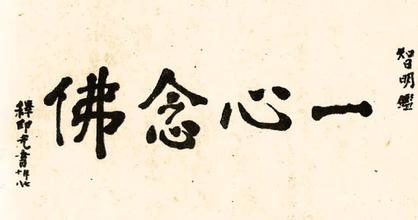 智明鑑
一心念佛
釋印光書